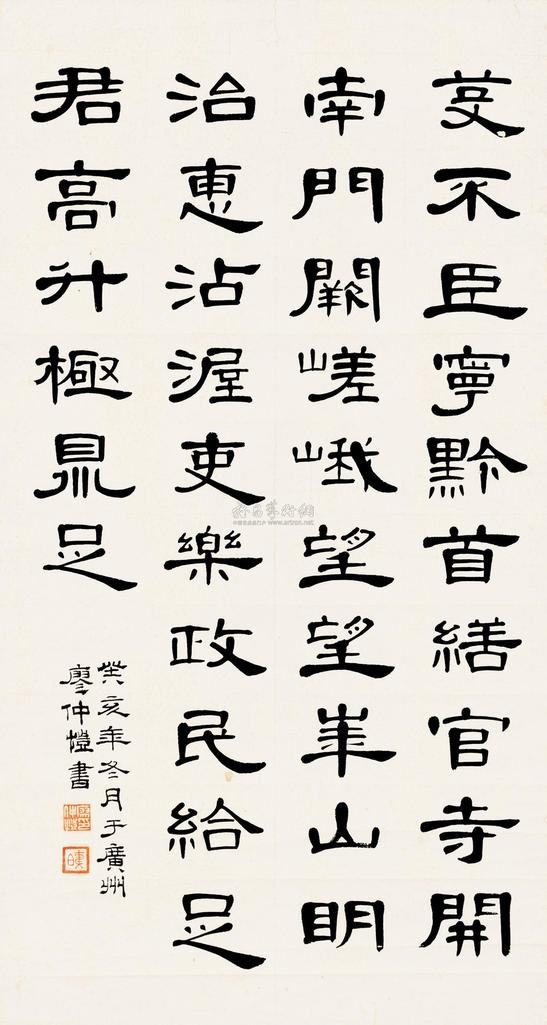 芟不臣寧黔首繕官寺開
南門闕嵯峨望望崋山明
治惠沾渥吏樂政民給足
君高升極鼎足
癸亥年冬月于廣州
廖仲愷書
www.artron.net